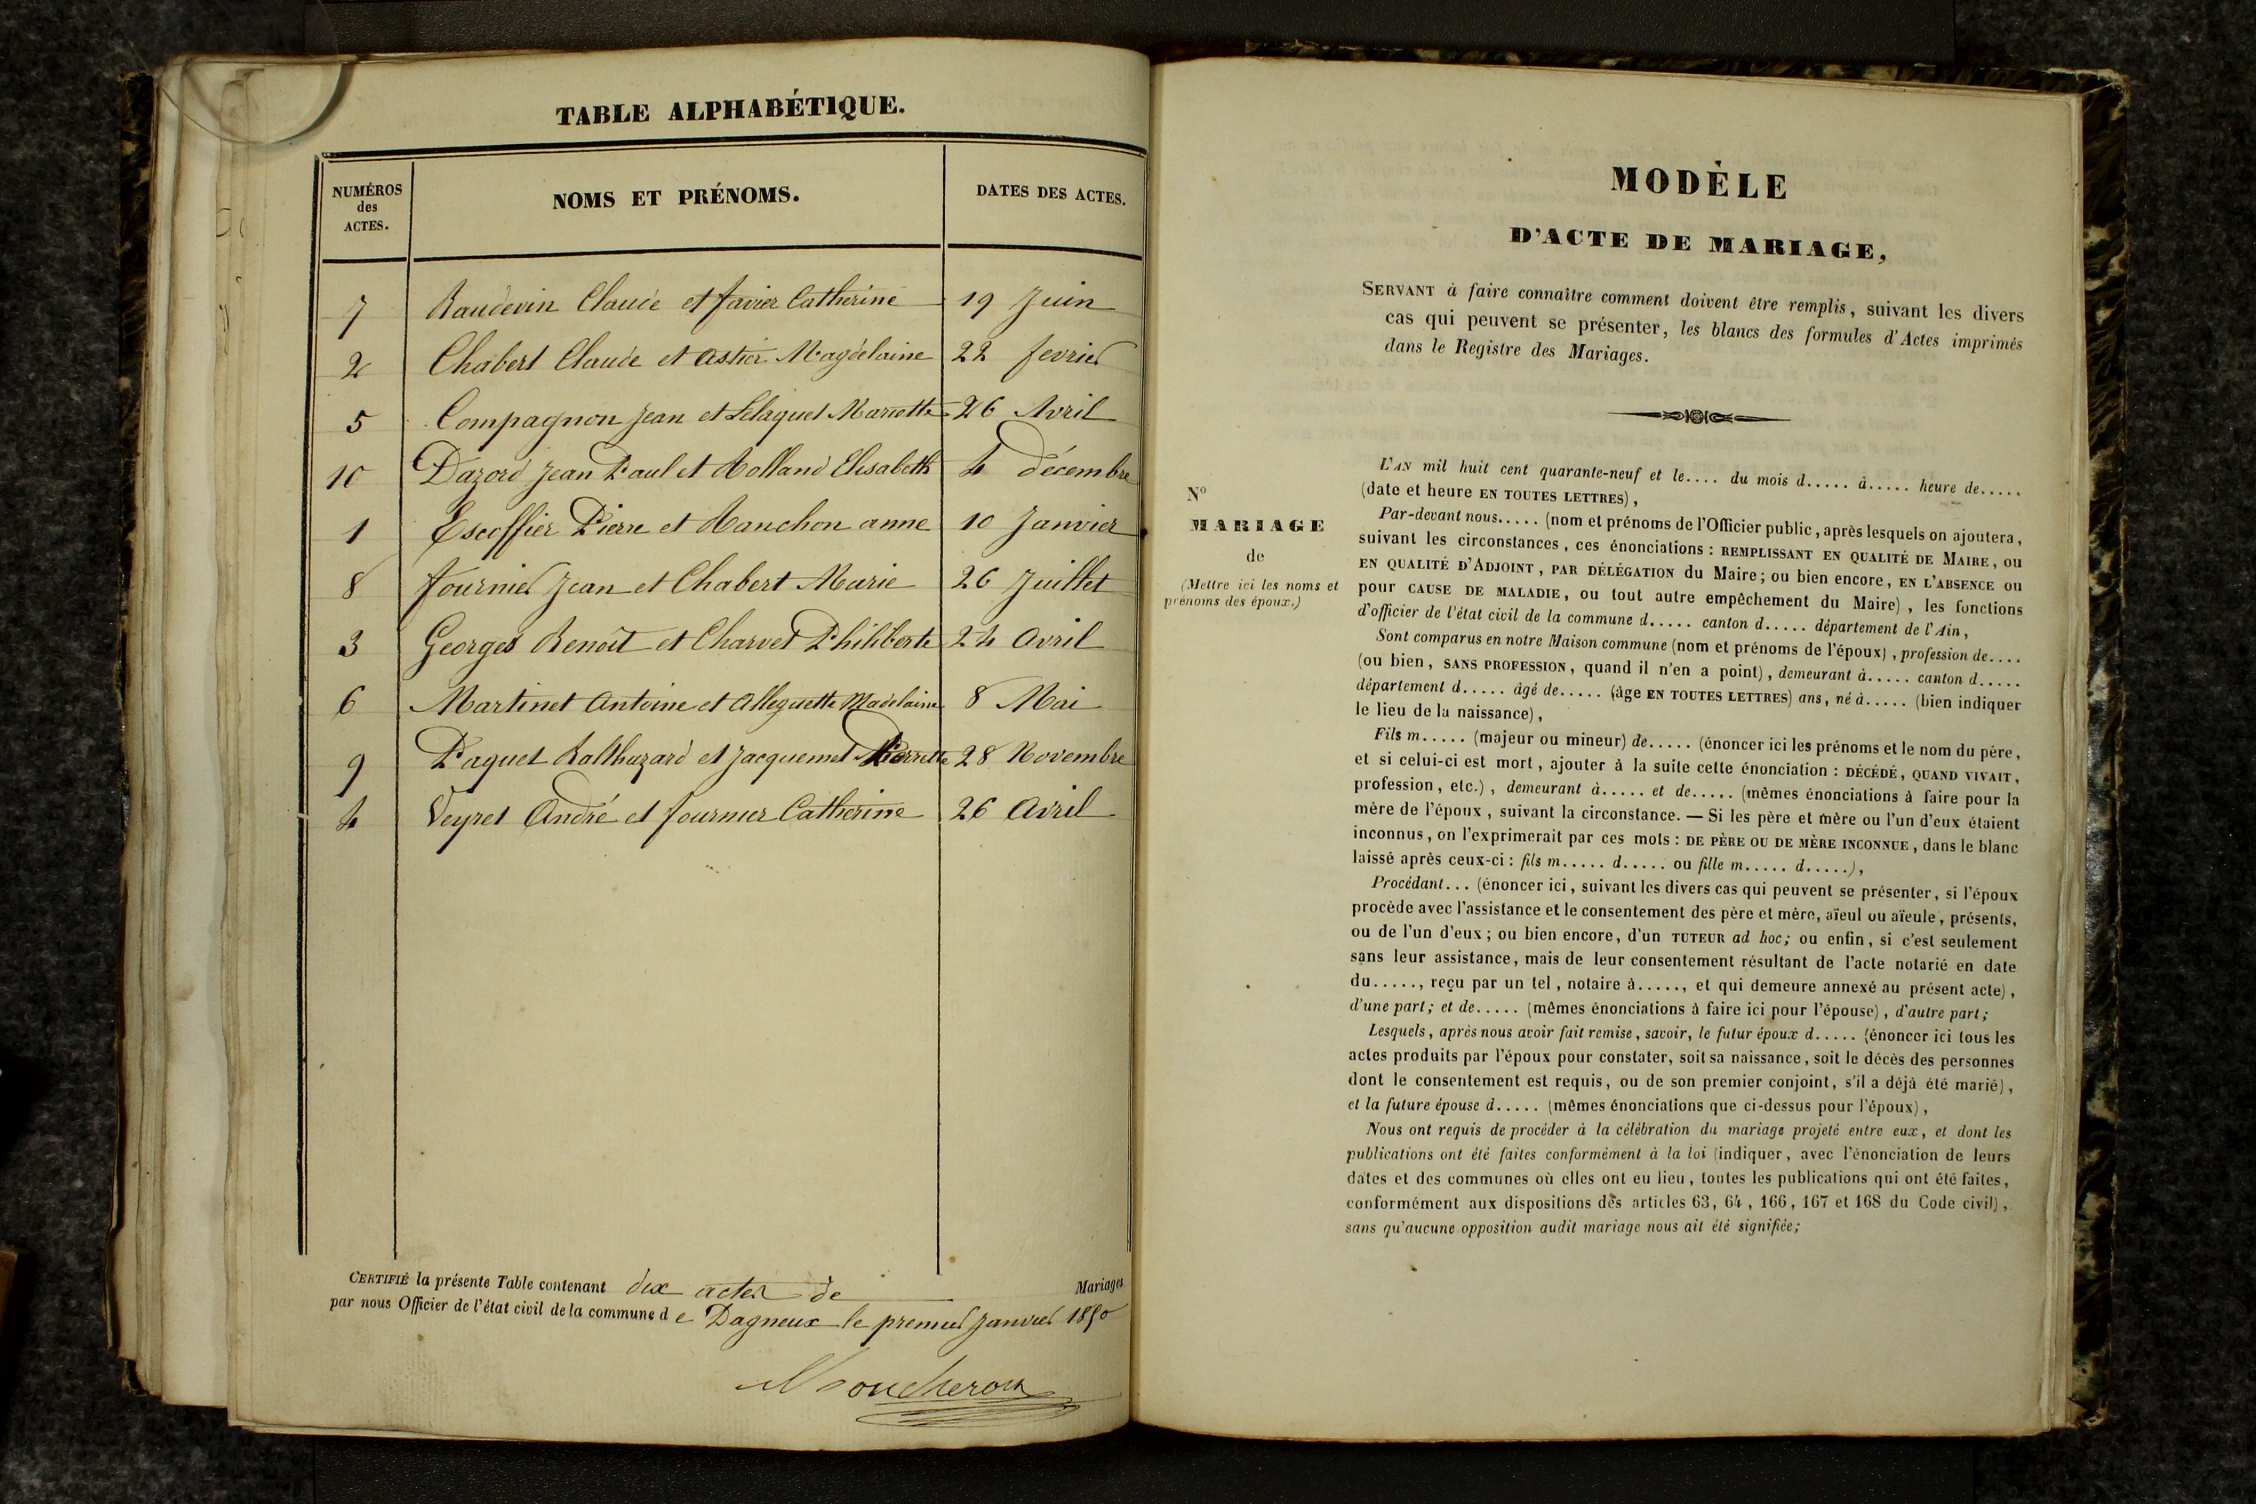 TABLE ALPHABÉTIQUE.
NUMÉROS des ACTES. NOMS ET PRÉNOMS. DATES DES ACTES.
7 Baudevin Claude et Favier Catherine 19 Juin
2 Chabert Claude et Astier Magdelaine 22 fevrier
5 Compagnon Jean et Mariette 26 Avril
10 Dazord Jean Paul et Rolland Elisabeth 4 décembre
1 Escoffier Pierre et Manchon anne 10 Janvier
8 fournier Jean et Chabert Marie 26 Juillet
3 Georges Benoît et Charvet Philiberte 24 Avril
6 Martinet Antoine et Alleguette Madelaine 8 Mai
9 Paquet Balthazard et Jacquemet Pierrette 28 Novembre
4 Veyret André et fournier Catherine 26 Avril
CERTIFIÉ la présente Table contenant dix actes de Mariages
par nous Officier de l'état civil de la commune d e Dagneux le premier Janvier 1850
Moucheron
MODÈLE
D'ACTE DE MARIAGE,
SERVANT à faire connaître comment doivent être remplis, suivant les divers
cas qui peuvent se présenter, les blancs des formules d'Actes imprimés
dans le Registre des Mariages.
N°
MARIAGE
de
(Mettre ici les noms et
prénoms des époux.)
L'AN mil huit cent quarante-neuf et le.... du mois d..... à..... heure de.....
(date et heure EN TOUTES LETTRES),
Par-devant nous..... (nom et prénoms de l'Officier public, après lesquels on ajoutera,
suivant les circonstances, ces énonciations : REMPLISSANT EN QUALITÉ DE MAIRE, OU
EN QUALITÉ D'ADJOINT, PAR DÉLÉGATION du Maire; ou bien encore, EN L'ABSENCE OU
pour CAUSE DE MALADIE, ou tout autre empêchement du Maire), les fonctions
d'officier de l'état civil de la commune d..... canton d..... département de l'Ain,
Sont comparus en notre Maison commune (nom et prénoms de l'époux), profession de....
(ou bien, SANS PROFESSION, quand il n'en a point), demeurant à..... canton d.....
département d..... âgé de..... (âge EN TOUTES LETTRES) ans, né à..... (bien indiquer
le lieu de la naissance),
Fils m..... (majeur ou mineur) de..... (énoncer ici les prénoms et le nom du père,
et si celui-ci est mort, ajouter à la suite cette énonciation : DÉCÉDÉ, QUAND VIVAIT,
profession, etc.), demeurant à..... et de..... (mêmes énonciations à faire pour la
mère de l'époux, suivant la circonstance. — Si les père et mère ou l'un d'eux étaient
inconnus, on l'exprimerait par ces mots : DE PÈRE OU DE MÈRE INCONNUE, dans le blanc
laissé après ceux-ci : fils m..... d..... ou fille m..... d.....),
Procédant... (énoncer ici, suivant les divers cas qui peuvent se présenter, si l'époux
procède avec l'assistance et le consentement des père et mère, aïeul ou aïeule, présents,
ou de l'un d'eux; ou bien encore, d'un TUTEUR ad hoc; ou enfin, si c'est seulement
sans leur assistance, mais de leur consentement résultant de l'acte notarié en date
du....., reçu par un tel, notaire à....., et qui demeure annexé au présent acte),
d'une part; et de..... (mêmes énonciations à faire ici pour l'épouse), d'autre part;
Lesquels, après nous avoir fait remise, savoir, le futur époux d..... (énoncer ici tous les
actes produits par l'époux pour constater, soit sa naissance, soit le décès des personnes
dont le consentement est requis, ou de son premier conjoint, s'il a déjà été marié),
et la future épouse d..... (mêmes énonciations que ci-dessus pour l'époux),
Nous ont requis de procéder à la célébration du mariage projeté entre eux, et dont les
publications ont été faites conformément à la loi (indiquer, avec l'énonciation de leurs
dates et des communes où elles ont eu lieu, toutes les publications qui ont été faites,
conformément aux dispositions des articles 63, 64, 166, 167 et 168 du Code civil),
sans qu'aucune opposition audit mariage nous ait été signifiée;